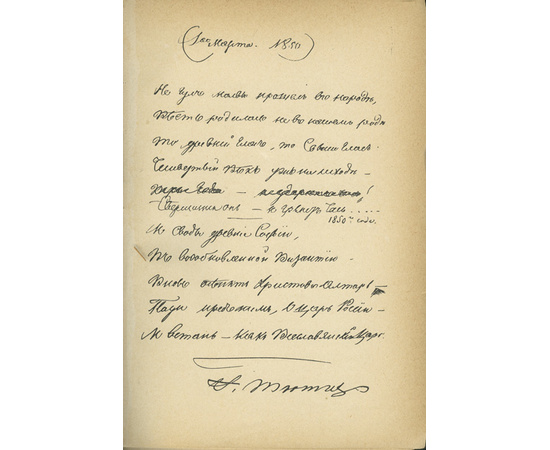 (1го Марта. 1850)
Не гулъ молвы прошелъ въ народѣ,
Вѣсть родилась не въ нашемъ родѣ
То древній гласъ, то Свыше гласъ:
Четвертый вѣкъ ужъ на исходѣ –
Свершится онъ – и грянетъ часъ . . . . .
1850го года.
И Своды древніе Софіи,
Въ возобновленной Византіи
Вновь осѣнятъ Христовъ Олтарь –
Пади предъ нимъ, о Царь Россіи –
И встань – какъ Всеславянскій Царь.
Ѳ. Тютчевъ